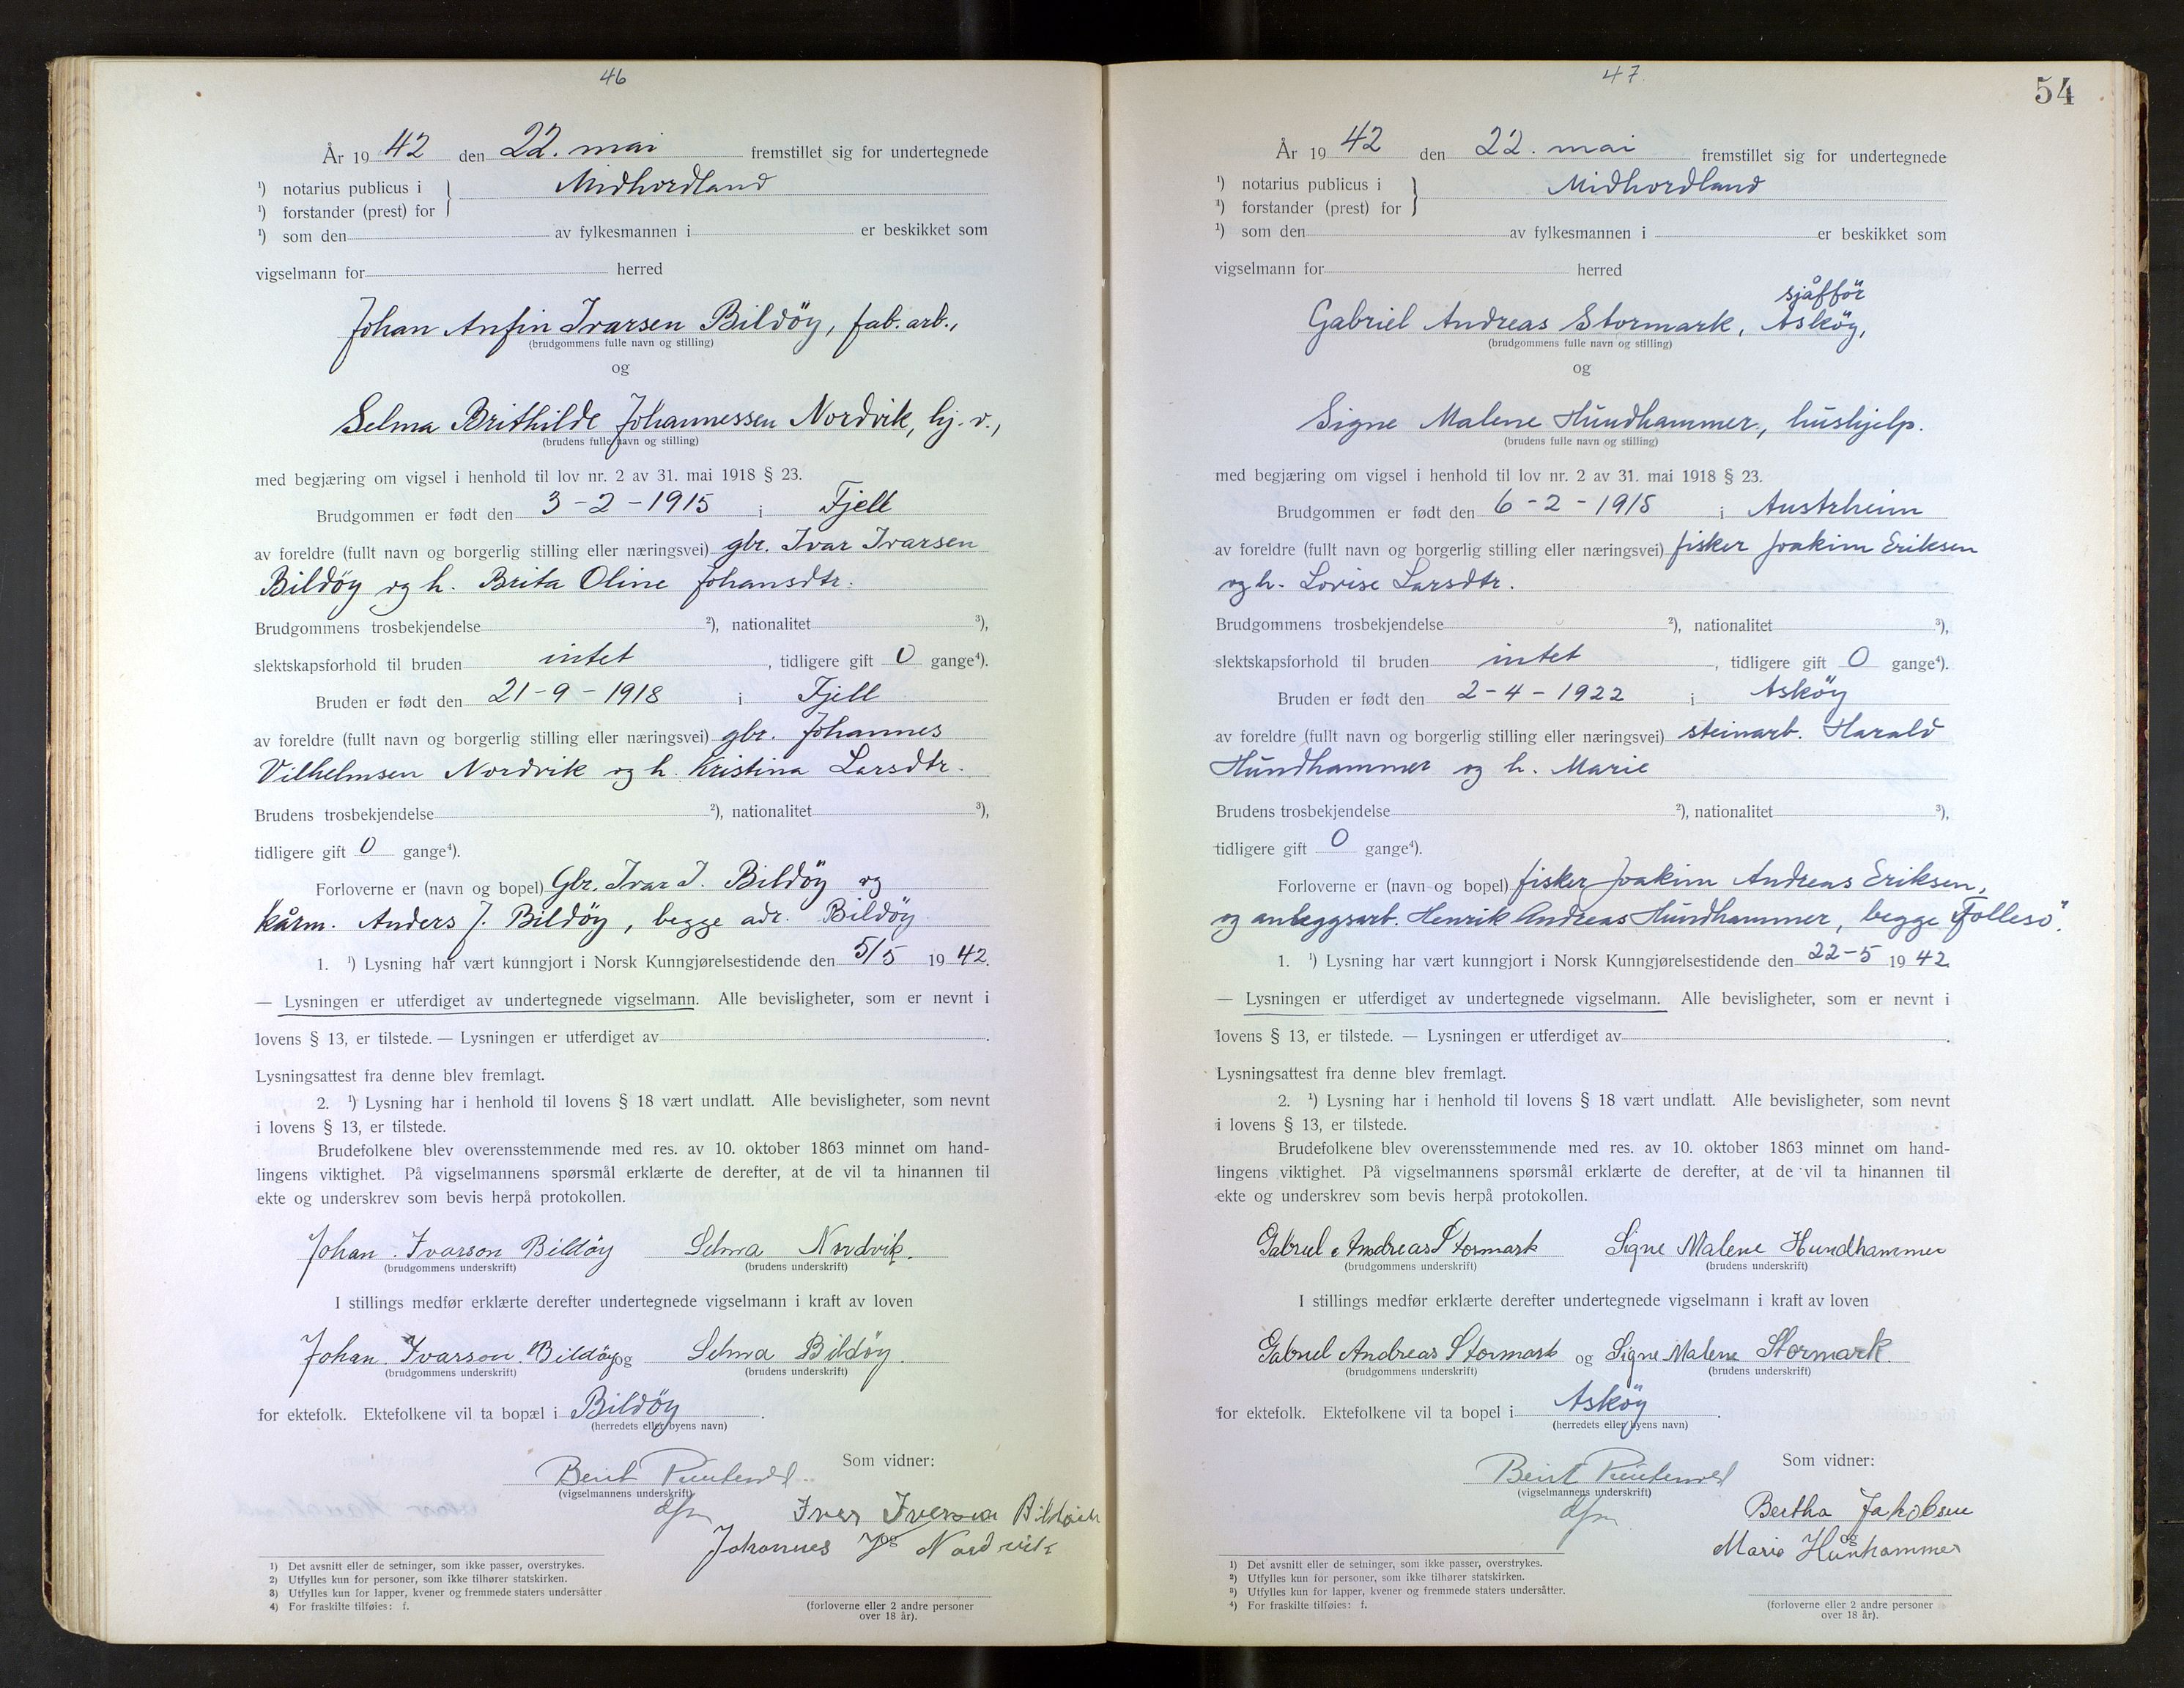 46
År 19 42 den 22. mai fremstillet sig for undertegnede
¹) notarius publicus i } Midhordland
¹) forstander (prest) for
¹) som den av fylkesmannen i er beskikket som
vigselmann for herred
Johan Anfin Ivarsen Bildöy, fab. arb.,
(brudgommens fulle navn og stilling)
og
Selma Brithilde Johannessen Nordvik, hj. v.,
(brudens fulle navn og stilling)
med begjæring om vigsel i henhold til lov nr. 2 av 31. mai 1918 § 23.
Brudgommen er født den 3-2-1915 i Fjell
av foreldre (fullt navn og borgerlig stilling eller næringsvei) gbr. Ivar Ivarsen
Bildöy og h. Brita Oline Johansdtr.
Brudgommens trosbekjendelse ²), nationalitet ³),
slektskapsforhold til bruden intet, tidligere gift 0 gange⁴).
Bruden er født den 21-9-1918 i Fjell
av foreldre (fullt navn og borgerlig stilling eller næringsvei) gbr. Johannes
Vilhelmsen Nordvik og h. Kristina Larsdtr.
Brudens trosbekjendelse ²), nationalitet ³),
tidligere gift 0 gange⁴).
Forloverne er (navn og bopel) Gbr. Ivar I. Bildöy og
kårm. Anders J. Bildöy, begge adr. Bildöy
1. ¹) Lysning har vært kunngjort i Norsk Kunngjørelsestidende den 5/5 19 42.
— Lysningen er utferdiget av undertegnede vigselmann. Alle bevisligheter, som er nevnt i
lovens § 13, er tilstede. — Lysningen er utferdiget av .
Lysningsattest fra denne blev fremlagt.
2. ¹) Lysning har i henhold til lovens § 18 vært undlatt. Alle bevisligheter, som nevnt
i lovens § 13, er tilstede.
Brudefolkene blev overensstemmende med res. av 10. oktober 1863 minnet om hand-
lingens viktighet. På vigselmannens spørsmål erklærte de derefter, at de vil ta hinannen til
ekte og underskrev som bevis herpå protokollen.
Johan. Ivarson Bildöy Selma Nordvik.
(brudgommens underskrift) (brudens underskrift)
I stillings medfør erklærte derefter undertegnede vigselmann i kraft av loven
Johan. Ivarson. Bildöy og Selma Bildöy.
(brudgommens underskrift) (brudens underskrift)
for ektefolk. Ektefolkene vil ta bopæl i Bildöy.
(herredets eller byens navn)
Berit
Som vidner:
(vigselmannens underskrift)
dfm
Iver
og
Johannes Nordvik
1) Det avsnitt eller de setninger, som ikke passer, overstrykes.
2) Utfylles kun for personer, som ikke tilhører statskirken.
3) Utfylles kun for lapper, kvener og fremmede staters undersåtter
4) For fraskilte tilføies: f.
(forloverne eller 2 andre personer
over 18 år).
47
54
År 19 42 den 22. mai fremstillet sig for undertegnede
¹) notarius publicus i } Midhordland
¹) forstander (prest) for
¹) som den av fylkesmannen i er beskikket som
vigselmann for herred
sjåfför
Gabriel Andreas Stormark, Asköy,
(brudgommens fulle navn og stilling)
og
Signe Malene Hundhammer, hushjelp.
(brudens fulle navn og stilling)
med begjæring om vigsel i henhold til lov nr. 2 av 31. mai 1918 § 23.
Brudgommen er født den 6-2-1918 i Austrheim
av foreldre (fullt navn og borgerlig stilling eller næringsvei) fisker Joakim Eriksen
og h. Lovise Larsdtr.
Brudgommens trosbekjendelse ²), nationalitet ³),
slektskapsforhold til bruden intet, tidligere gift 0 gange⁴).
Bruden er født den 2-4-1922 i Asköy
av foreldre (fullt navn og borgerlig stilling eller næringsvei) steinarb. Harald
Hundhammer og h. Marie
Brudens trosbekjendelse ²), nationalitet ³),
tidligere gift 0 gange⁴).
Forloverne er (navn og bopel) fisker Joakim Andreas Eriksen,
og anleggsarb. Henrik Andreas Hundhammer, begge "Follesö".
1. ¹) Lysning har vært kunngjort i Norsk Kunngjørelsestidende den 22-5 19 42
— Lysningen er utferdiget av undertegnede vigselmann. Alle bevisligheter, som er nevnt i
lovens § 13, er tilstede. — Lysningen er utferdiget av .
Lysningsattest fra denne blev fremlagt.
2. ¹) Lysning har i henhold til lovens § 18 vært undlatt. Alle bevisligheter, som nevnt
i lovens § 13, er tilstede.
Brudefolkene blev overensstemmende med res. av 10. oktober 1863 minnet om hand-
lingens viktighet. På vigselmannens spørsmål erklærte de derefter, at de vil ta hinannen til
ekte og underskrev som bevis herpå protokollen.
Gabriel Andreas Stormark Signe Malene Hundhammer
(brudgommens underskrift) (brudens underskrift)
I stillings medfør erklærte derefter undertegnede vigselmann i kraft av loven
Gabriel Andreas Stormark og Signe Malene Stormark.
(brudgommens underskrift) (brudens underskrift)
for ektefolk. Ektefolkene vil ta bopel i Asköy.
(herredets eller byens navn)
Berit
Som vidner:
(vigselmannens underskrift)
dfm
Bertha Jakobsen
og
Marie Hunhammer
1) Det avsnitt eller de setninger, som ikke passer, overstrykes.
2) Utfylles kun for personer, som ikke tilhører statskirken.
3) Utfylles kun for lapper, kvener og fremmede staters undersåtter.
4) For fraskilte tilføies: f.
(forloverne eller 2 andre personer
over 18 år).